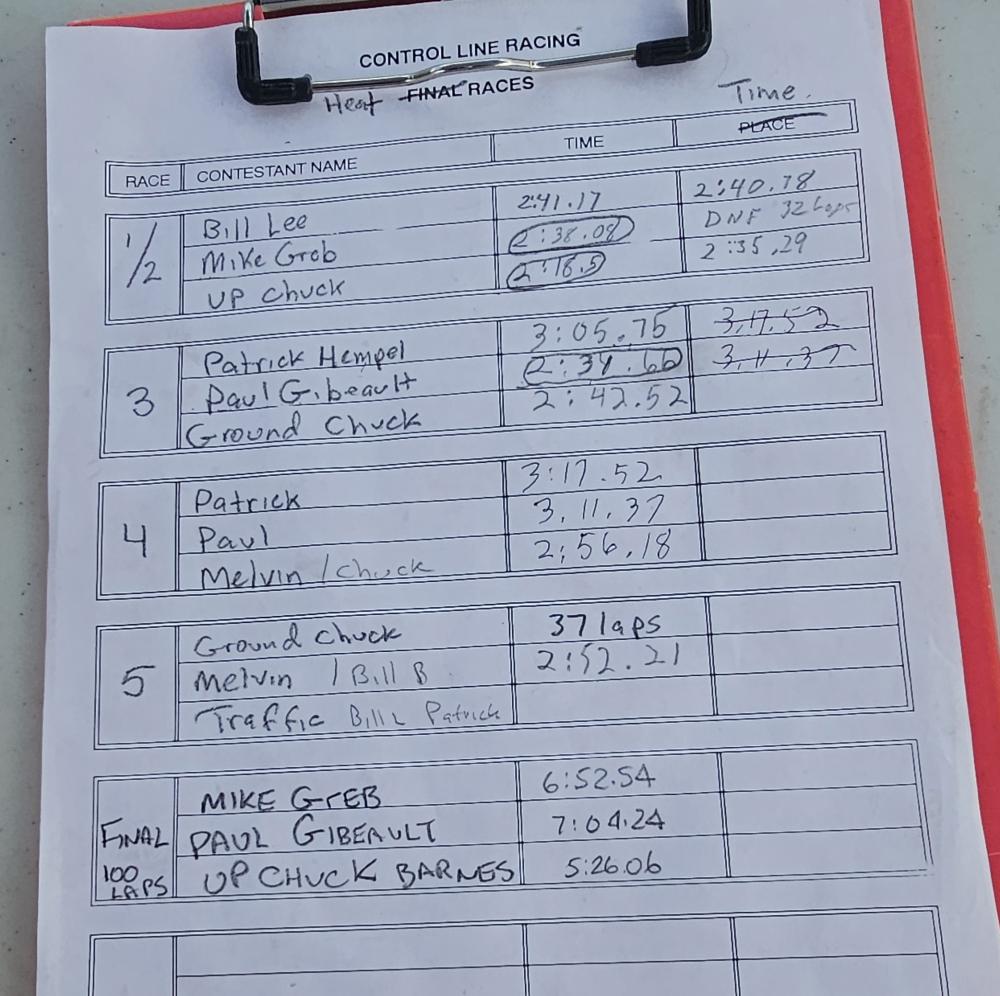 CONTROL LINE RACING
Heat FINAL RACES Time.
RACE CONTESTANT NAME TIME PLACE
1/2 Bill Lee 2:41.17 2:40.78
Mike Greb 2:38.08 DNF 32 Laps
UP Chuck 2:18.5 2:35.29
3 Patrick Hempel 3:05.75 3,17.52
Paul Gibeault 2:39.60 3,11,37
Ground Chuck 2:42.52
4 Patrick 3:17.52
Paul 3,11,37
Melvin / Chuck 2:56.18
5 Ground Chuck 37 laps
Melvin / Bill B 2:52.21
Traffic Bill L Patrick
FINAL 100 LAPS MIKE GrEB 6:52.54
PAUL GIBEAULT 7:04.24
UP CHUCK BARNES 5:26.06